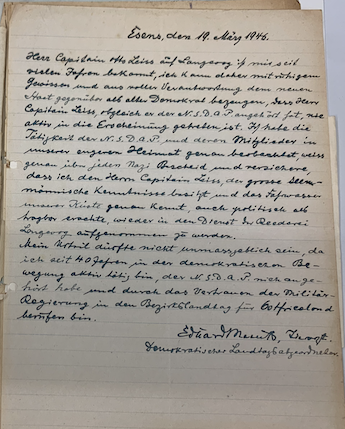 Esens, den 19. März 1946.
Herr Capitain Otto Leiss auf Langeoog ist mir seit
vielen Jahren bekannt, ich kann daher mit ruhigem
Gewissen und aus voller Verantwortung dem neuen
Staat gegenüber als alter Demokrat bezeugen, dass Herr
Capitän Leiss, obgleich er der N.S.D.A.P. angehört hat, nie
aktiv in die Erscheinung getreten ist. Ich habe die
Tätigkeit der N.S.D.A.P. und deren Mitglieder in
unserer engeren Heimat genau beobachtet, weiss
genau über jeden Nazi Bescheid und versichere,
dass ich den Herrn Capitän Leiss, der grosse See-
männische Kenntnisse besitzt und das Fahrwasser
unserer Küste genau kennt, auch politisch als
tragbar erachte, wieder in den Dienst der Reederei
Langeoog aufgenommen zu werden.
Mein Urteil dürfte nicht unmassgeblich sein, da
ich seit 40 Jahren in der demokratischen Be-
wegung aktiv tätig bin, der N.S.D.A.P. nicht ange-
hört habe und durch das Vertrauen der Militär-
Regierung in den Bezirkslandtag für Ostfriesland
berufen bin.
Demokratischer Landtagsabgeordneter.